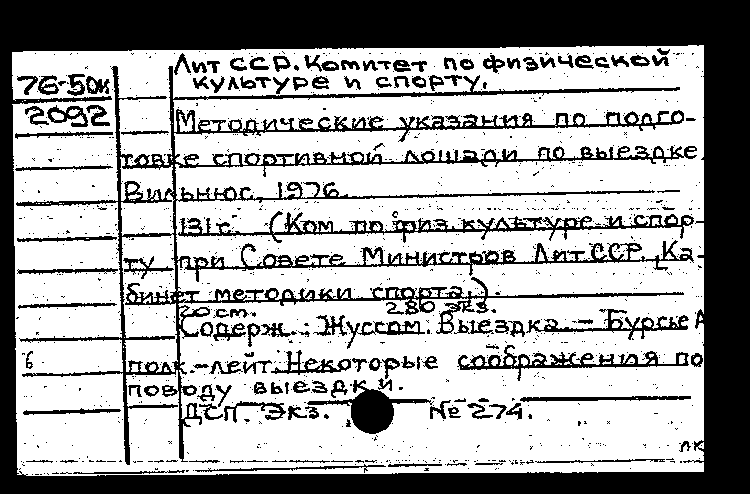 Лит ССР. Комитет по физической
76-50к культуре и спорту.
2092 Методические указания по подго-
товке спортивной лошади по выездке.
Вильнюс, 1976.
131 с. (Ком. по физ. культуре и спор-
ту при Совете Министров Лит.ССР. Ка-
бинет методики спорта.).
20 см. 280 экз.
Содерж.: Жуссом. Выездка. - Бурсье А
6 полк.-лейт. Некоторые соображения по
поводу выездки.
ДСП. Экз. № 274.